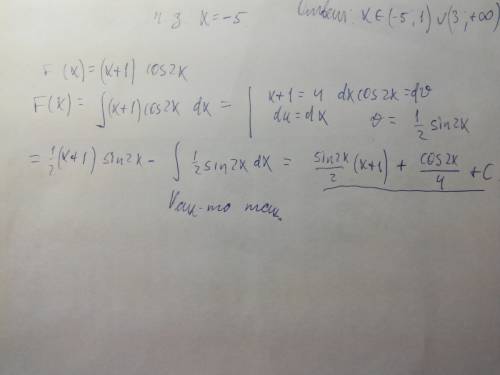 x = -5 Ответ: x ∈ (-5, 1) ∪ (3; +∞)
F(x) = (x+1) cos2x
F(x) = ∫(x+1)cos2x dx = | x+1 = u dx cos2x = dv
du = dx v = 1/2 sin2x
= 1/2 (x+1) sin2x - ∫ 1/2 sin2x dx = sin2x/2 (x+1) + cos2x/4 + C
Как-то так